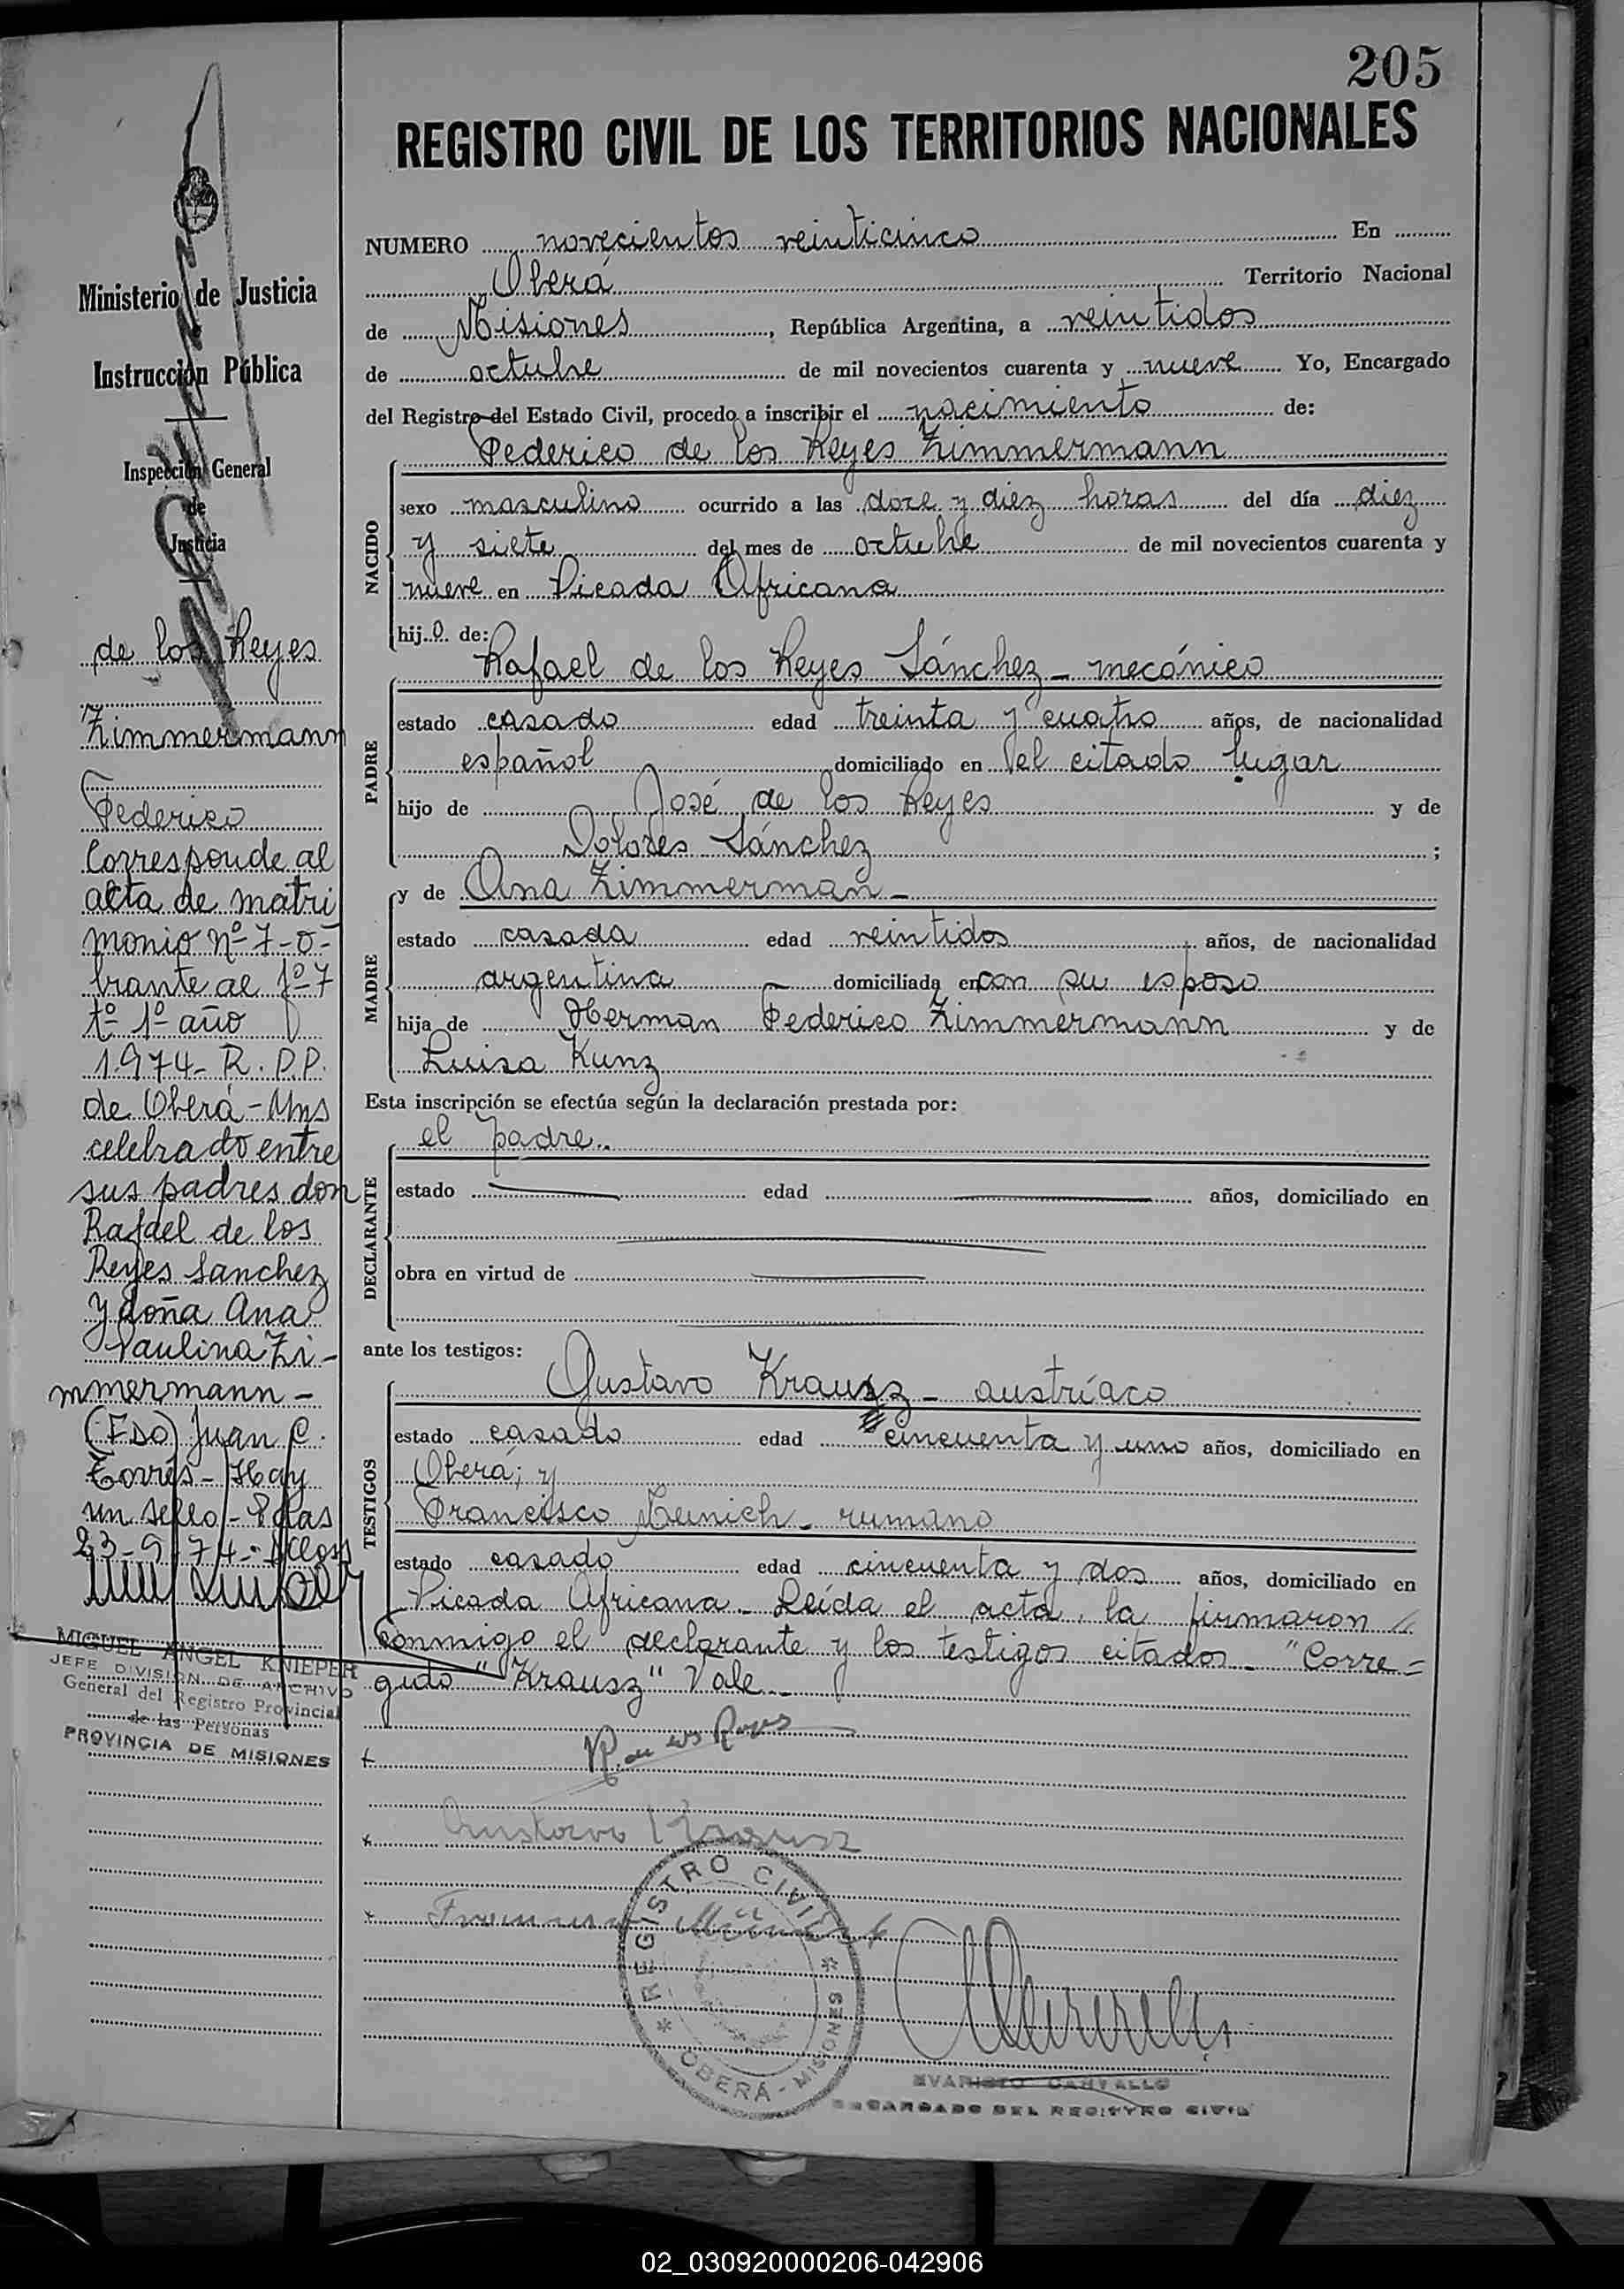 205
REGISTRO CIVIL DE LOS TERRITORIOS NACIONALES
NUMERO novecientos veinticinco En
Oberá Territorio Nacional
de Misiones, República Argentina, a veintidos
de octubre de mil novecientos cuarenta y nueve Yo, Encargado
del Registro del Estado Civil, procedo a inscribir el nacimiento de:
Federico de los Reyes Zimmermann
NACIDO
sexo masculino ocurrido a las doce y diez horas del día diez
y siete del mes de octubre de mil novecientos cuarenta y
nueve en Picada Africana
hijo de:
Rafael de los Reyes Sánchez - mecánico
PADRE
estado casado edad treinta y cuatro años, de nacionalidad
español domiciliado en el citado lugar
hijo de José de los Reyes y de
Dolores Sánchez ;
y de Ana Zimmerman -
MADRE
estado casada edad veintidos años, de nacionalidad
argentina domiciliada en con su esposo
hija de Herman Federico Zimmermann y de
Luisa Kunz
Esta inscripción se efectúa según la declaración prestada por:
el padre..
DECLARANTE
estado edad años, domiciliado en
obra en virtud de
ante los testigos:
Gustavo Krausz - austríaco
TESTIGOS
estado casado edad cincuenta y uno años, domiciliado en
Oberá; y
Francisco Meunich - rumano
estado casado edad cincuenta y dos años, domiciliado en
Picada Africana. Leída el acta, la firmaron
conmigo el declarante y los testigos citados. "Corre=
gido "Krausz" Vale.
R. de los Reyes
Gustavo Krausz
REGISTRO CIVIL
* OBERÁ - MISIONES *
EVARISTO CARVALLO
ENCARGADO DEL REGISTRO CIVIL
Ministerio de Justicia
Instrucción Pública
Inspección General
de
Justicia
de los Reyes
Zimmermann
Federico
Corresponde al
acta de matri
monio nº 7-o-
brante al fº 7
tº 1º año
1974- R.P.P.
de Oberá - Mns
celebrado entre
sus padres don
Rafael de los
Reyes Sanchez
y doña Ana
Paulina Zi-
mmermann -
(FDO) Juan C.
Torres - Hay
un sello - Pdas
23-9-74-
MIGUEL ANGEL KNIEPER
JEFE DIVISION DE ARCHIVO
General del Registro Provincial
de las Personas
PROVINCIA DE MISIONES
02_030920000206-042906